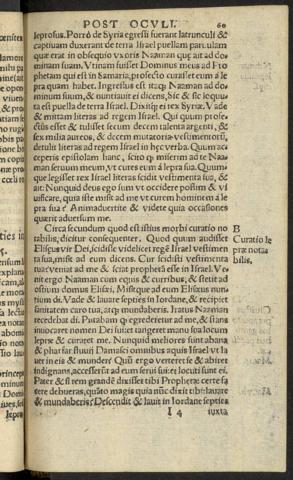 POST OCVLI. 60
leprosus. Porrò de Syria egressi fuerant latrunculi &
captiuam duxerant de terra Israel puellam paruulam
quæ erat in obsequio vxoris Naaman quæ ait ad do-
minam suam. Vtinam fuisset Dominus meus ad Pro
phetam qui est in Samaria, profectò curasset eum à le
pra quam habet. Ingressus est itaq; Naaman ad do-
minum suum, & nuntiauit ei dicens, Sic & sic loquu-
ta est puella de terra Israel. Dixitq; ei rex Syriæ. Vade
& mittam literas ad regem Israel. Qui quum profe-
ctus esset & tulisset secum decem talenta argenti, &
sex milia aureos, & decem mutatoria vestimentorū,
detulit literas ad regem Israel in hęc verba. Quum ac-
ceperis epistolam hanc, scito q; miserim ad te Naa-
man seruum meum, vt cures eum à lepra sua. Quum-
que legisset literas rex Israel scidit vestimenta sua, &
ait: Nunquid deus ego sum vt occidere possim & vi
uificare, quia iste misit ad me vt curem hominem à le
pra sua? Animaduertite & videte quia occasiones
quærit aduersum me.
Circa secundum quod est istius morbi curatio no
tabilis, dicitur consequenter. Quod quum audisset
Eliseus vir Dei, scidisse videlicet regē Israel vestimen
ta sua, misit ad eum dicens. Cur scidisti vestimenta
tua: veniat ad me & sciat prophetā esse in Israel. Ve-
nit ergo Naaman cum equis & curribus, & stetit ad
ostium domus Elisei, Misitque ad eum Eliseus nun-
tium dicens. Vade & lauare septies in Iordane, & recipiet
sanitatem caro tua, atq; mundaberis. Iratus Naaman
recedebat di. Putabam q; egrederetur ad me, & stans
inuocaret nomen Dei sui et tangeret manu sua locum
lepræ & curaret me. Nunquid meliores sunt abana
& pharfar fluuij Damasci omnibus aquis Israel vt la
uer in eis & munder? Quū ergo verteret se & abiret
indignans, accesserūt ad eum serui sui: et locuti sunt ei.
Pater & si rem grandē dixisset tibi Propheta: certe fa
cere debueras, quāto magis quia nūc dixit tibi: lauare
& mundaberis? Descendit & lauit in Iordane septies
I 4 iuxta
B
Curatio le
præ notas
bilis.